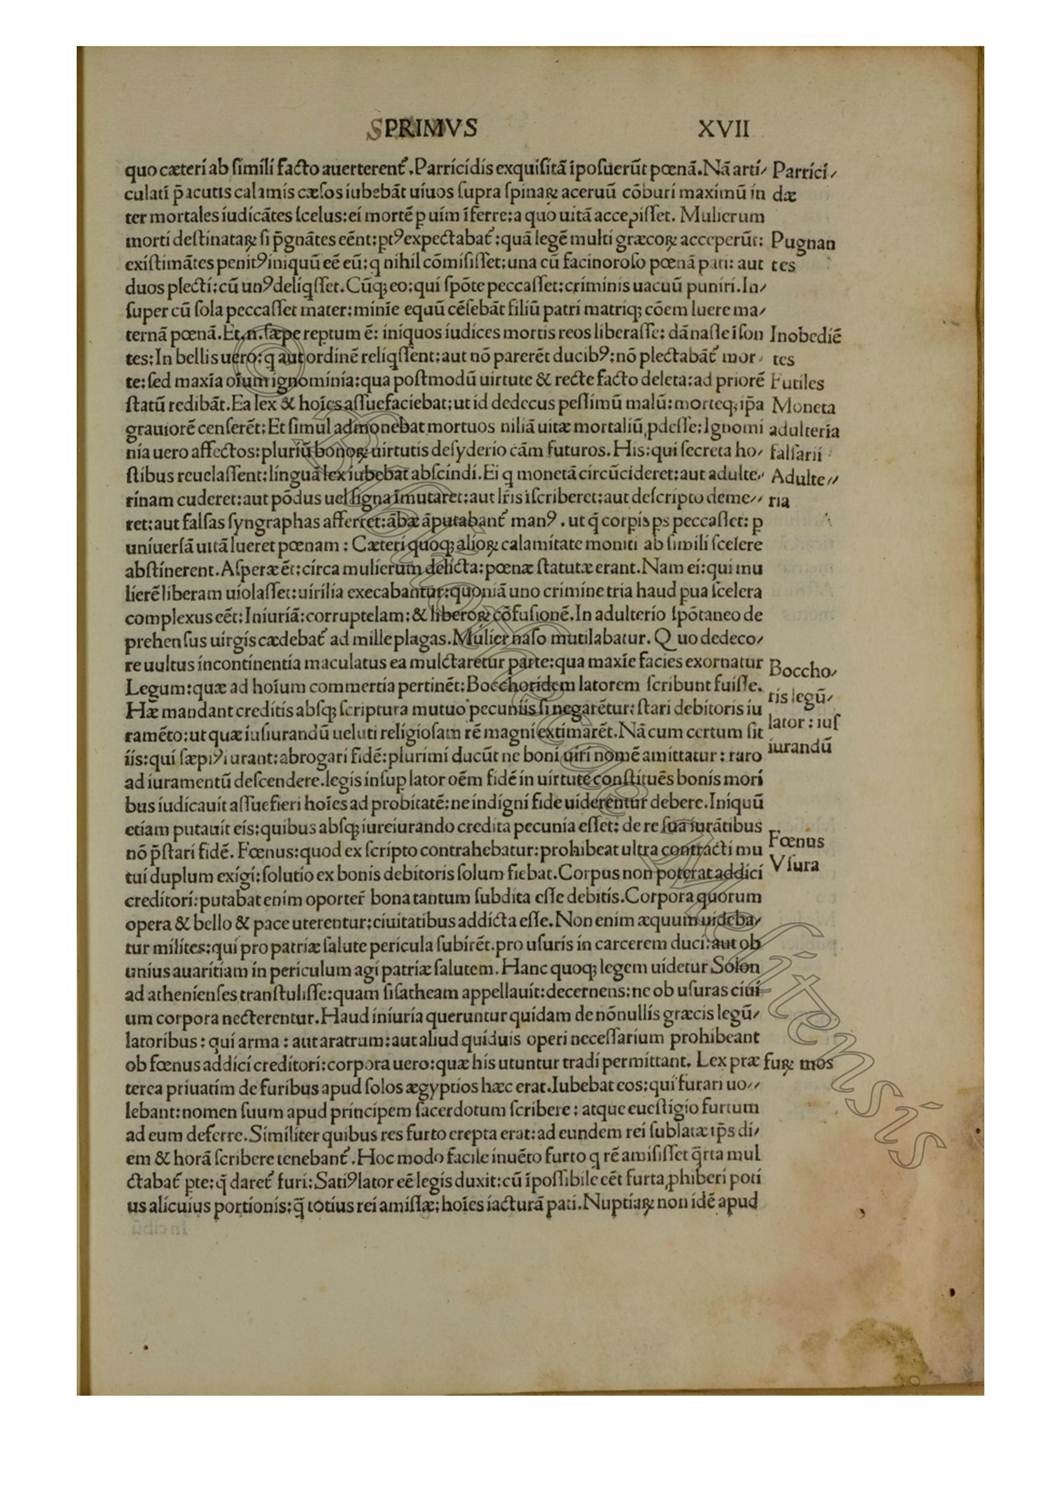 PRIMVS XVII
quo cæteri ab simili facto auerterent᷑. Parricidis exquisitā īposuerūt pœnā. Nā arti⸗
culati p̄ acutis calamis cæsos iubebāt uiuos supra spinaꝝ aceruū cōburi maximū in
ter mortales iudicātes scelus: ei mortē p uim īferre: a quo uitā accepisset. Mulierum
morti destinataꝝ si p̄gnātes eēnt: ptꝰ expectabat᷑: quā legē multi græcoꝝ acceperūt:
existimātes penitꝰ iniquū eē eū: q nihil cōmisisset: una cū facinoroso pœnā pati: aut
duos plecti: cū unꝰ deliqsset. Cūq; eo: qui spōte peccasset: criminis uacuū puniri. In⸗
super cū sola peccasset mater: minīe equū cēsebāt filiū patri matriq; cōem luere ma⸗
ternā pœnā. Et .n. sæpe reptum ē: iniquos iudices mortis reos liberasse: dānasse īson
tes: In bellis uero: q aut ordinē reliqssent: aut nō parerēt ducibꝰ: nō plectabāt᷑ mor⸗
te: sed maxīa oīum ignominia: qua postmodū uirtute & recte facto deleta: ad priorē
statū redibāt. Ea lex & hoīes assuefaciebat: ut id dedecus pessimū malū: morteq; ip̄a
grauiorē censerēt: Et simul admonebat mortuos niliā uitæ mortaliū ꝓdesse: Ignomi
nia uero affectos: pluriū bonoꝝ uirtutis desyderio cām futuros. His: qui secreta ho⸗
stibus reuelassent: linguā lex iubebat abscindi. Ei q monetā circūcideret: aut adulte⸗
rinam cuderet: aut pōdus uel signa īmutaret: aut lr̄is īscriberet: aut descripto deme⸗
ret: aut falsas syngraphas afferret: ābæ āputabant᷑ manꝰ. ut q̄ corpis ps peccasset: p
uniuersā uitā lueret pœnam: Cæteri quoq; alioꝝ calamitate moniti ab simili scelere
abstinerent. Asperæ ēt: circa mulierum delicta: pœnæ statutæ erant. Nam ei: qui mu
lierē liberam uiolasset: uirilia execabantur: quoniā uno crimine tria haud pua scelera
complexus eēt: Iniuriā: corruptelam: & liberoꝝ cōfusionē. In adulterio spōtaneo de
prehensus uirgis cædebat᷑ ad mille plagas. Mulier naso mutilabatur. Quo dedeco⸗
re uultus incontinentia maculatus ea mulctaretur parte: qua maxīe facies exornatur
Legum: quæ ad hoīum commertia pertinēt: Bocchoridem latorem scribunt fuisse.
Hæ mandant creditis absq; scriptura mutuo pecuniis si negarētur: stari debitoris iu
ramēto: ut quæ iusiurandū ueluti religiosam rē magni extimarēt. Nā cum certum sit
iis: qui sæpiꝰ iurant: abrogari fidē: plurimi ducūt ne boni uiri nomē amittatur: raro
ad iuramentū descendere. legis insup lator oēm fidē in uirtute constituēs bonis mori
bus iudicauit assuefieri hoīes ad probitatē: ne indigni fide uiderentur debere. Iniquū
etiam putauit eis: quibus absq; iureiurando credita pecunia esset: de re sua iurātibus
nō p̄stari fidē. Fœnus: quod ex scripto contrahebatur: prohibeat ultra contracti mu
tui duplum exigi: solutio ex bonis debitoris solum fiebat. Corpus non poterat addici
creditori: putabat enim oporter̄ bona tantum subdita esse debitis. Corpora quorum
opera & bello & pace uterentur: ciuitatibus addicta esse. Non enim æquum uideba⸗
tur milites: qui pro patriæ salute pericula subirēt. pro usuris in carcerem duci: aut ob
unius auaritiam in periculum agi patriæ salutem. Hanc quoq; legem uidetur Solon
ad athenienses transtulisse: quam sisatheam appellauit: decernens: ne ob usuras ciui
um corpora necterentur. Haud iniuria queruntur quidam de nōnullis græcis legū⸗
latoribus: qui arma: aut aratrum: aut aliud quiduis operi necessarium prohibeant
ob fœnus addici creditori: corpora uero: quæ his utuntur tradi permittant. Lex præ
terea priuatim de furibus apud solos ægyptios hæc erat. Iubebat eos: qui furari uo⸗
lebant: nomen suum apud principem sacerdotum scribere: atque euestigio furtum
ad eum deferre. Similiter quibus res furto erepta erat: ad eundem rei sublatæ ip̄s di⸗
em & horā scribere tenebant᷑. Hoc modo facile inuēto furto q rē amisisset q̄rta mul
ctabat᷑ pte: q̄ daret᷑ furi: Satiꝰ lator eē legis duxit: cū īpossibile eēt furta ꝓhiberi poti
us alicuius portionis: q̄ totius rei amissæ: hoīes iacturā pati. Nuptiaꝝ non idē apud
Parrici⸗
dæ
Pugnan
tes
Inobediē
tes
Futiles
Moneta
adulteria
falsarii
Adulte⸗
ria
Boccho⸗
ris legū⸗
lator: ius
iurandū
Fœnus
Vsura
furꝝ mos